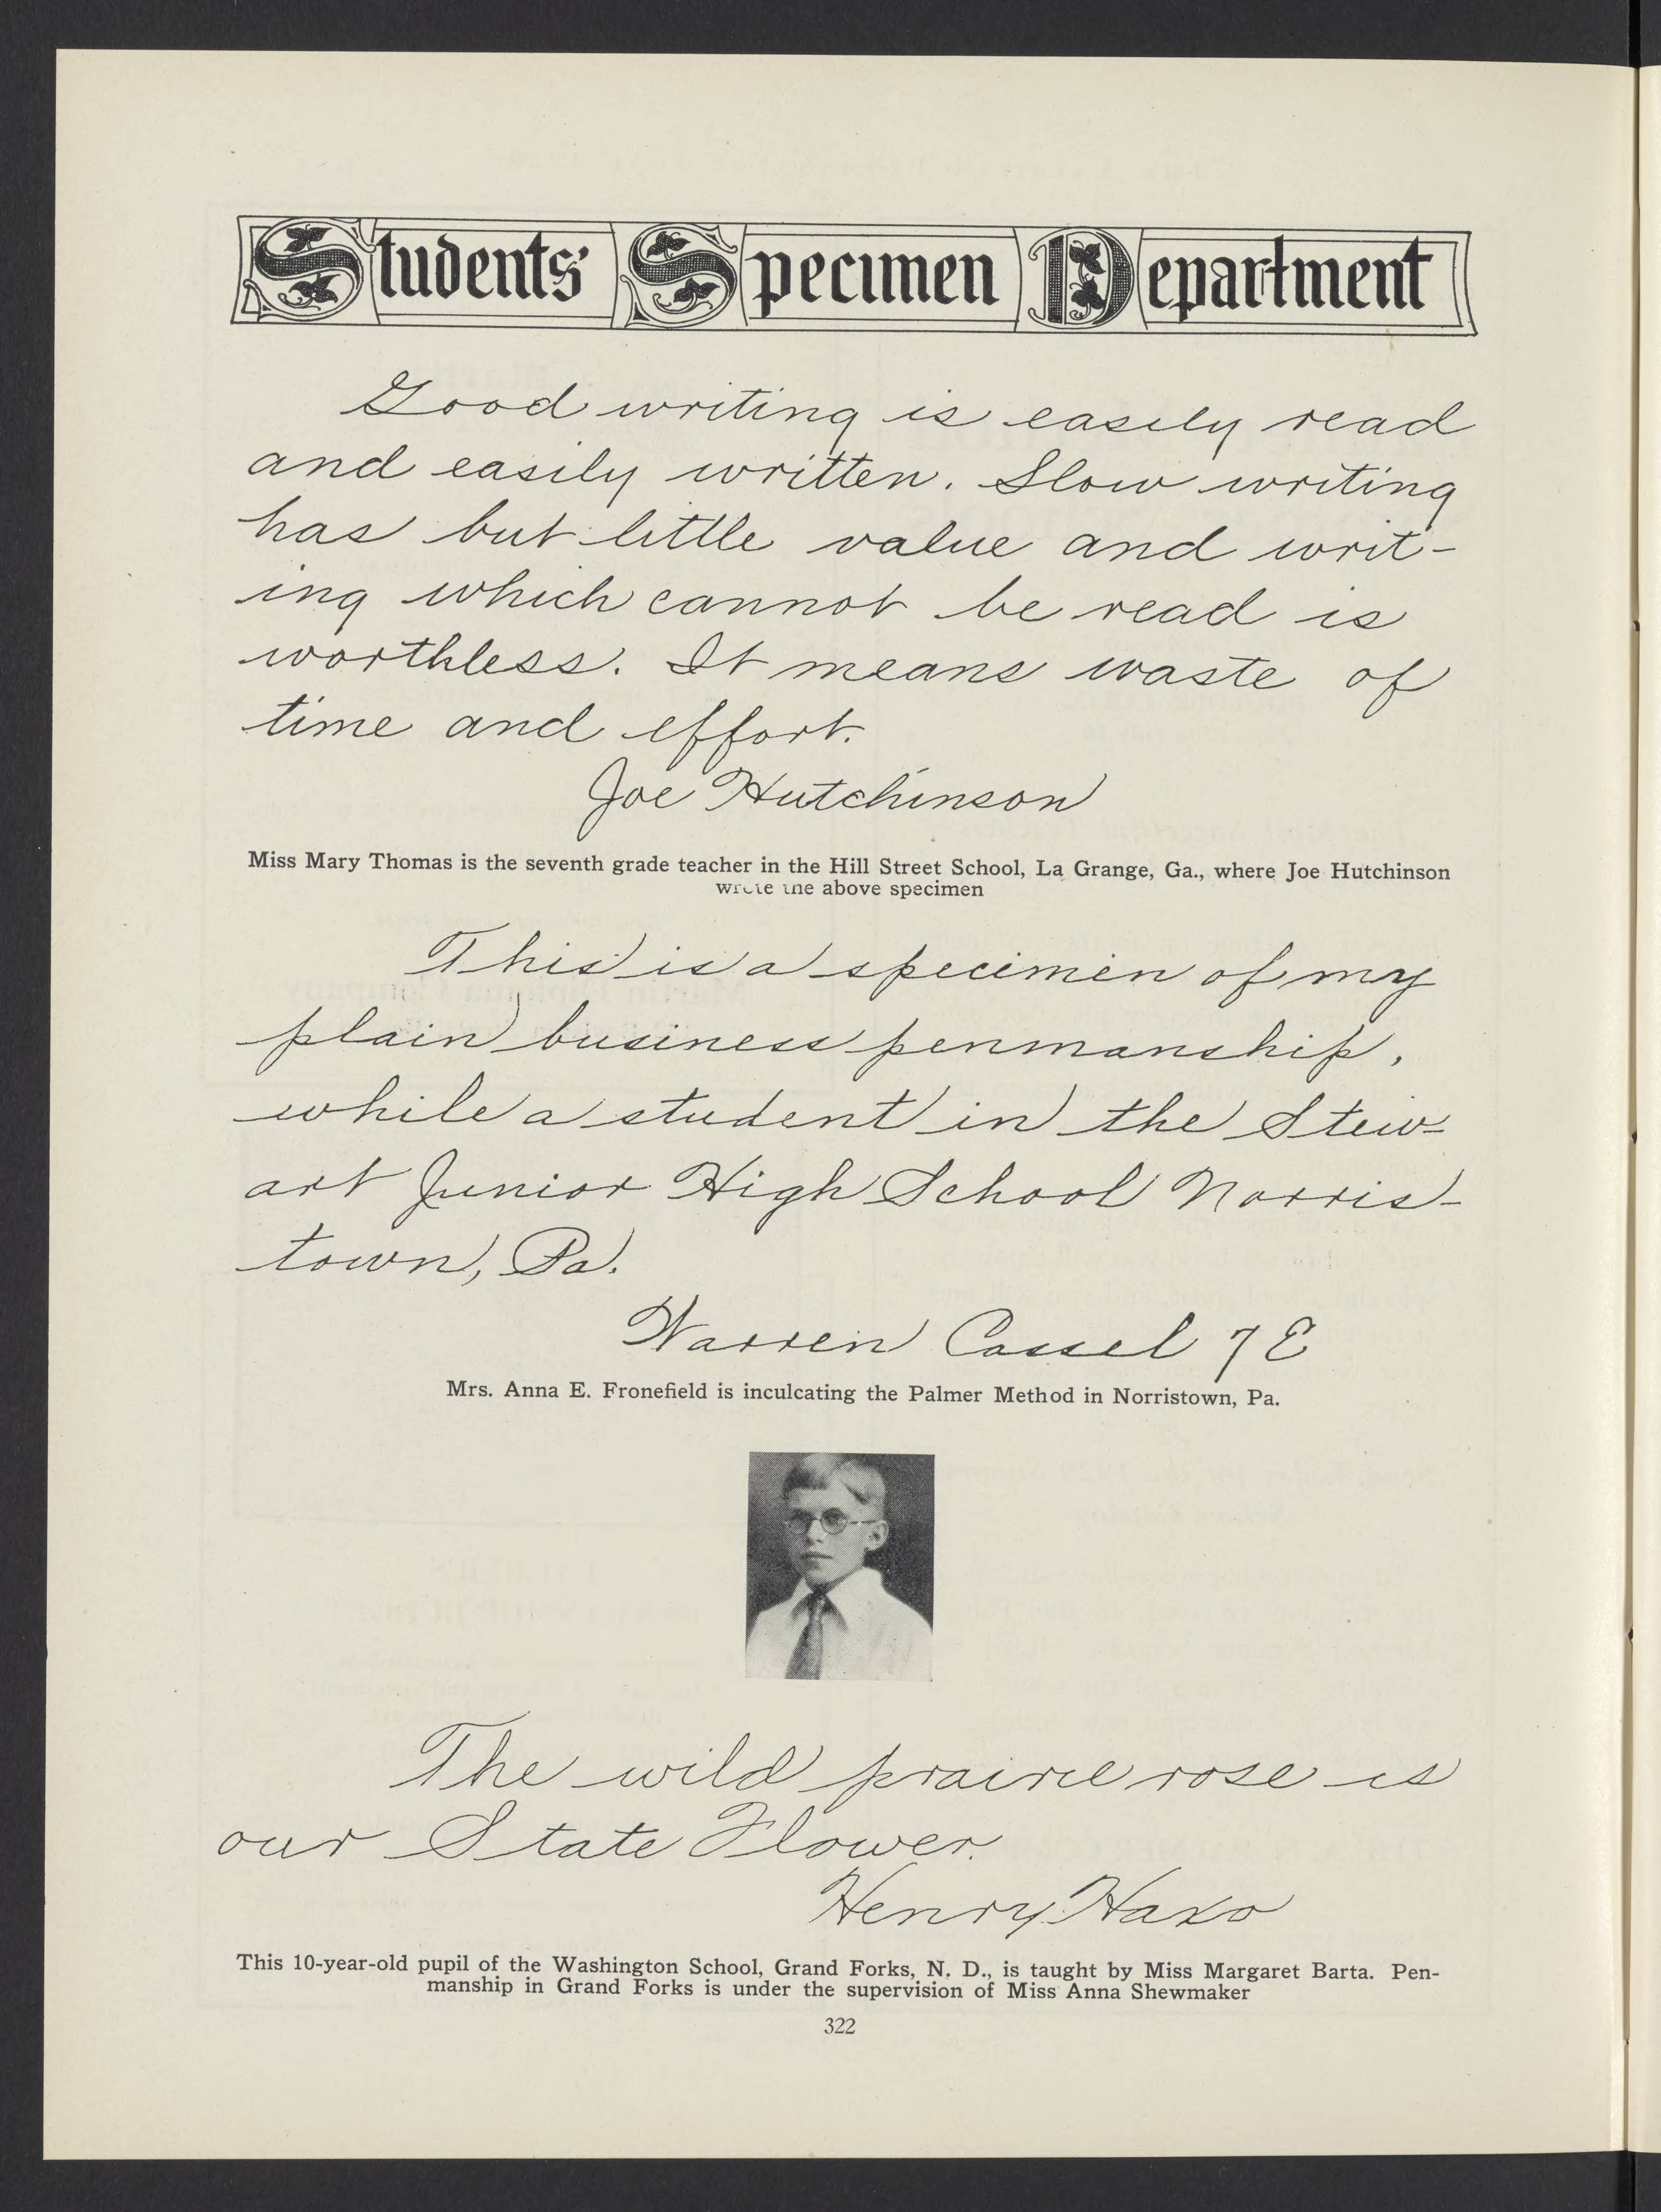 Students' Specimen Department
Good writing is easily read
and easily written. Slow writing
has but little value and writ-
ing which cannot be read is
worthless. It means waste of
time and effort.
Joe Hutchinson
Miss Mary Thomas is the seventh grade teacher in the Hill Street School, La Grange, Ga., where Joe Hutchinson
wrote the above specimen
This is a specimen of my
plain business penmanship,
while a student in the Stew-
art Junior High School Norris-
town, Pa.
Warren Cassel 7E
Mrs. Anna E. Fronefield is inculcating the Palmer Method in Norristown, Pa.
The wild prairie rose is
our State Flower.
Henry Haxo
This 10-year-old pupil of the Washington School, Grand Forks, N. D., is taught by Miss Margaret Barta. Pen-
manship in Grand Forks is under the supervision of Miss Anna Shewmaker
322